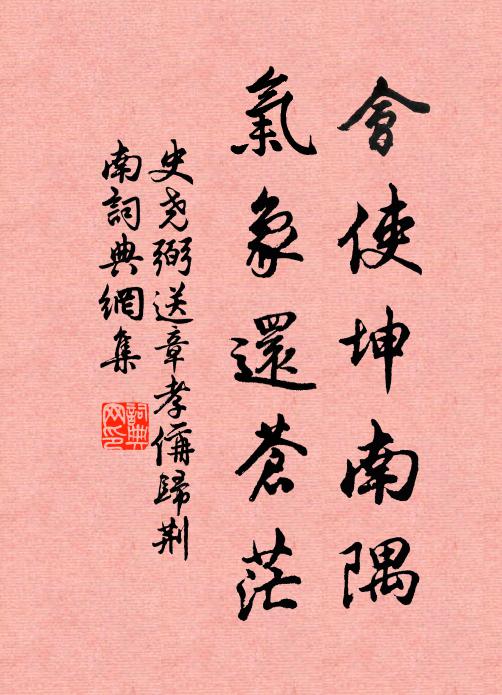 會使坤南隅
氣象還蒼茫
史尧弼送章孝備歸荆
南詞典網集
詞典网印